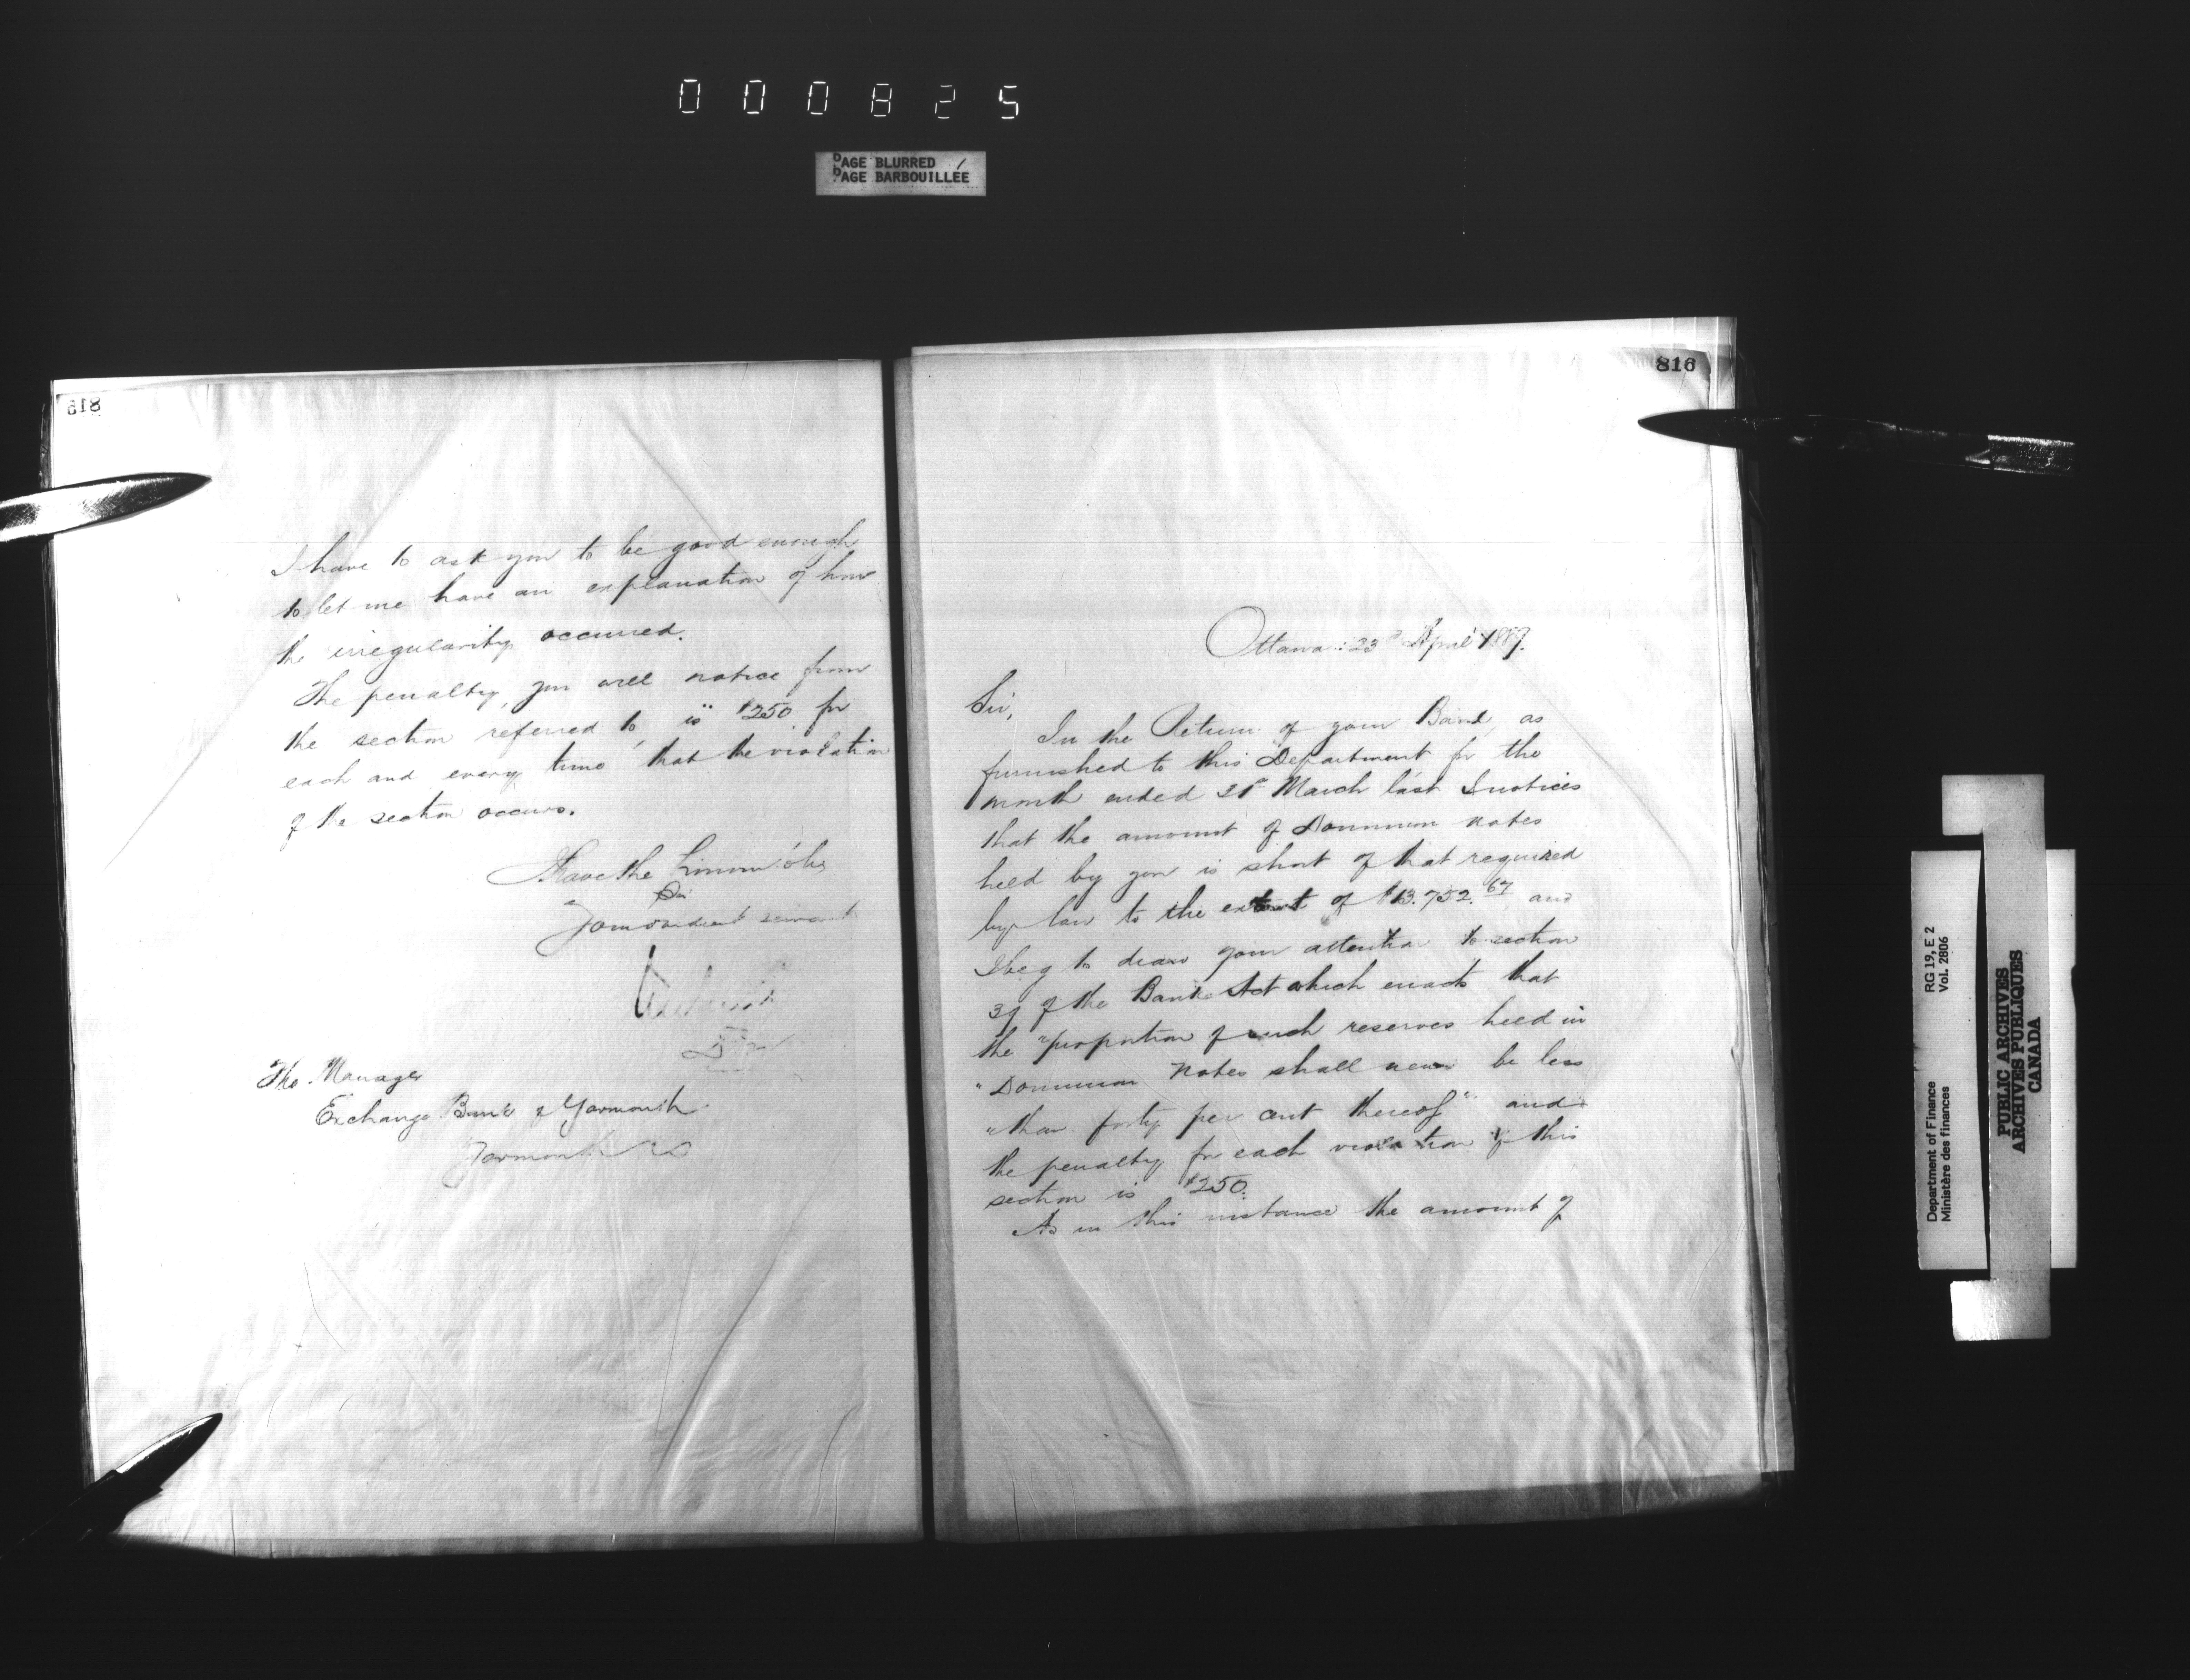 000825
PAGE BLURRED
PAGE BARBOUILLÉE
815
I have to ask you to be good enough
to let me have an explanation of how
the irregularity occurred.
The penalty, you will notice from
the section referred to, is $250 for
each and every time that the violation
of the section occurs.
I have the honour to be
Sir
Your obedient servant
The Manager
Exchange Bank of Yarmouth
Yarmouth NS
816
Ottawa: 23d April 1889.
Sir,
In the Return of your Bank, as
furnished to this Department for the
month ended 31st March last I notice
that the amount of Dominion notes
held by you is short of that required
by law to the extent of $13.752.67 and
I beg to draw your attention to section
39 of the Bank Act which enacts that
the "proportion of such reserves held in
"Dominion Notes shall never be less
"than forty per cent thereof" and
the penalty for each violation of this
section is $250.
As in this instance the amount of
Department of Finance RG 19, E 2
Ministère des finances Vol. 2806
PUBLIC ARCHIVES
ARCHIVES PUBLIQUES
CANADA